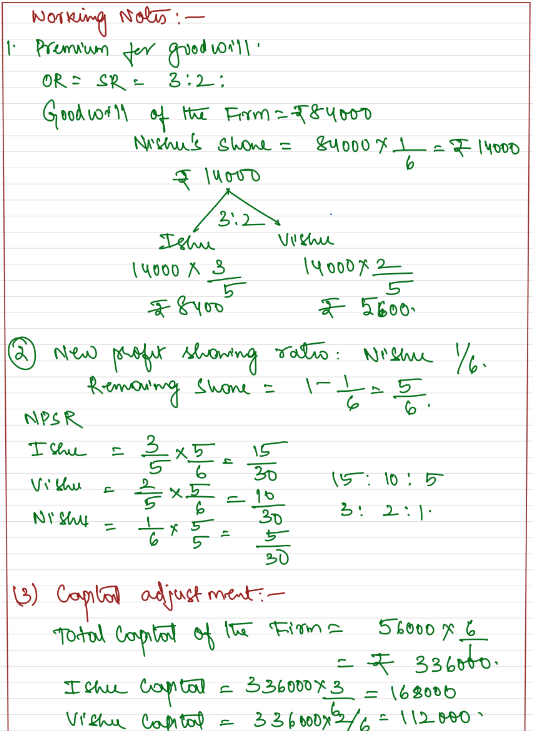 Working Notes :-
1. Premium for goodwill.
OR = SR = 3:2:
Goodwill of the Firm = ₹84000
Nishu's share = 84000 × 1/6 = ₹ 14000
₹ 14000
3:2
Ishu Vishu
14000 × 3/5 14000 × 2/5
₹ 8400 ₹ 5600.
(2) New profit sharing ratio: Nishu 1/6.
Remaining share = 1 - 1/6 = 5/6.
NPSR
Ishu = 3/5 × 5/6 = 15/30
Vishu = 2/5 × 5/6 = 10/30 15 : 10 : 5
Nishu = 1/6 × 5/5 = 5/30 3 : 2 : 1.
(3) Capital adjustment :-
Total Capital of the Firm = 56000 × 6/1
= ₹ 336000.
Ishu Capital = 336000 × 3/6 = 168000
Vishu Capital = 336000 × 2/6 = 112000.